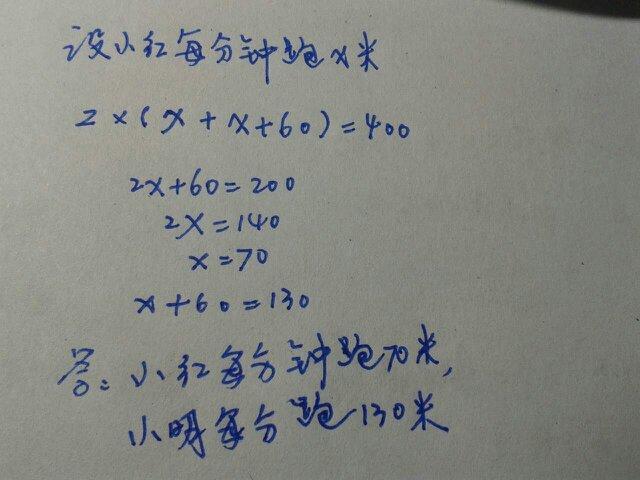 设小红每分钟跑x米
2×(x+x+60)=400
2x+60=200
2x=140
x=70
x+60=130
答:小红每分钟跑70米,
小明每分跑130米